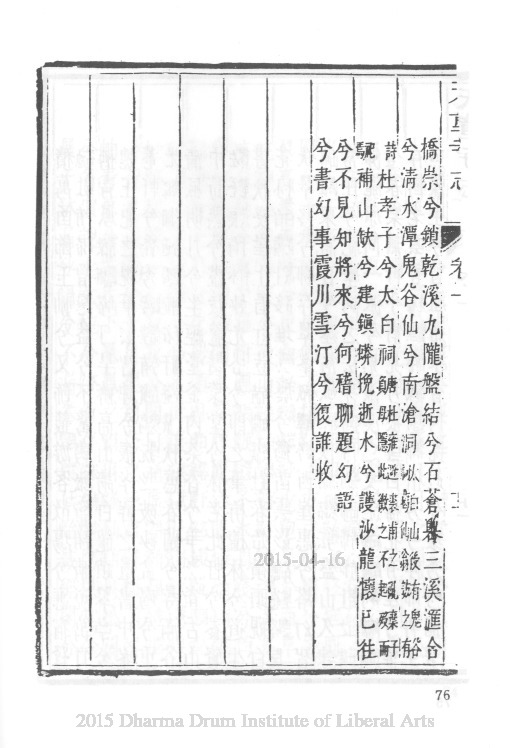 聖寺志 卷一
橋崇兮鎖乾溪九隴盤結兮石蒼舉三溪滙合
兮淸水潭鬼谷仙兮南滄洞
詩杜孝子兮太白祠
補山缺兮建鎭挽逝水兮護沙龍懷已往
兮不見知將來兮何稽聊題幻語
兮書幻事霞川雪汀兮復誰收
2015-04-16
76
2015 Dharma Drum Institute of Liberal Arts